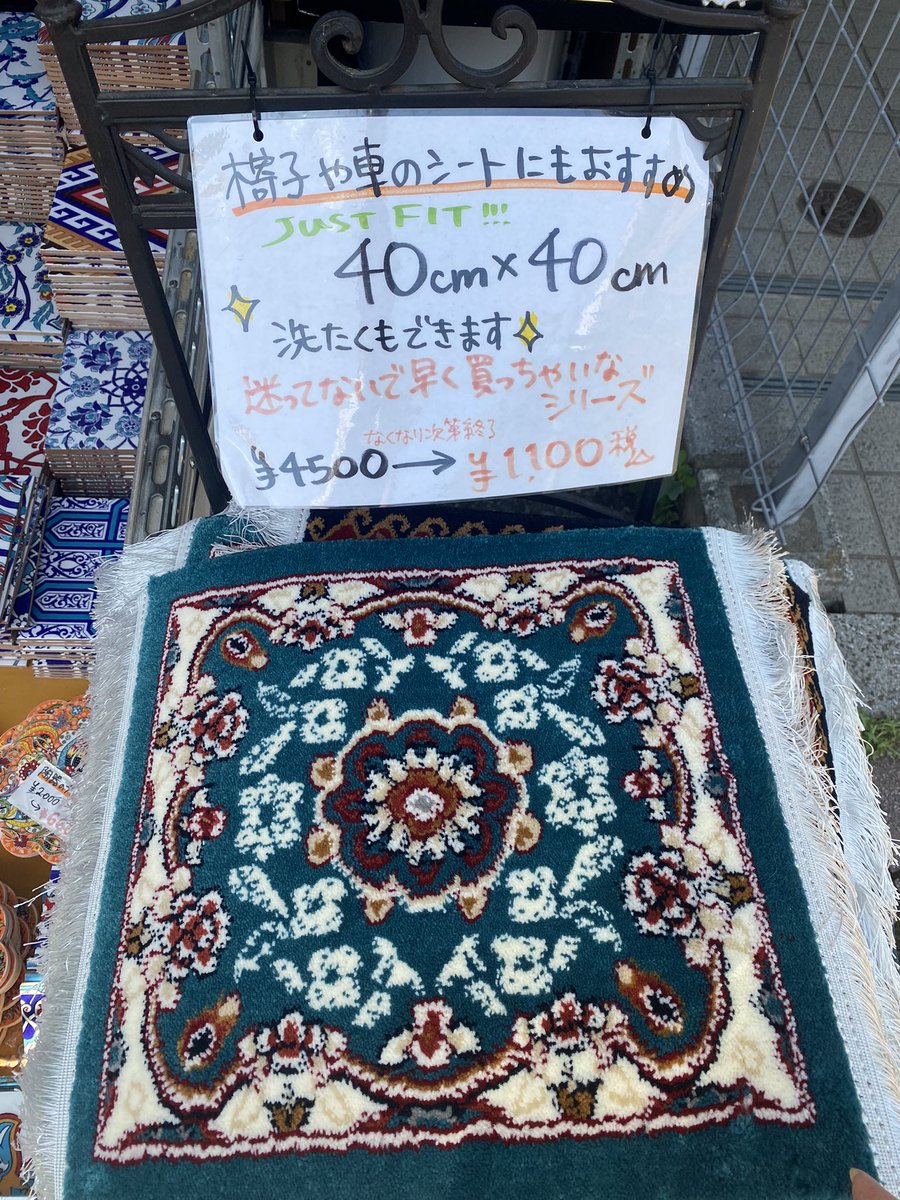 椅子や車のシートにもおすすめ
JUST FIT!!!
40cm×40cm
洗たくもできます
迷ってないで早く買っちゃいな
シリーズ
なくなり次第終了
¥4500→¥1,100税込
¥2,000